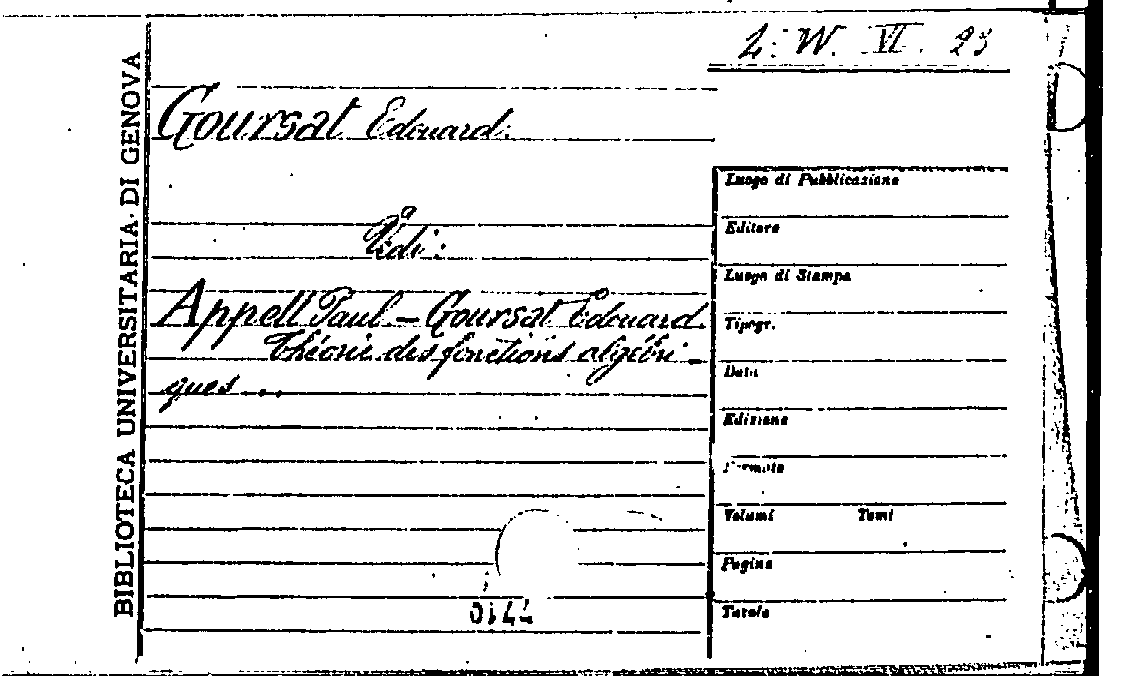 BIBLIOTECA UNIVERSITARIA DI GENOVA
W. VI. 23
Goursat Edouard.
Vidi:
Appell Paul – Goursat Edouard.
Théorie des fonctions algébri-
ques ...
Luogo di Pubblicazione
Editore
Luogo di Stampa
Tipogr.
Data
Edizione
Formato
Volumi Tomi
Pagine
Tavole